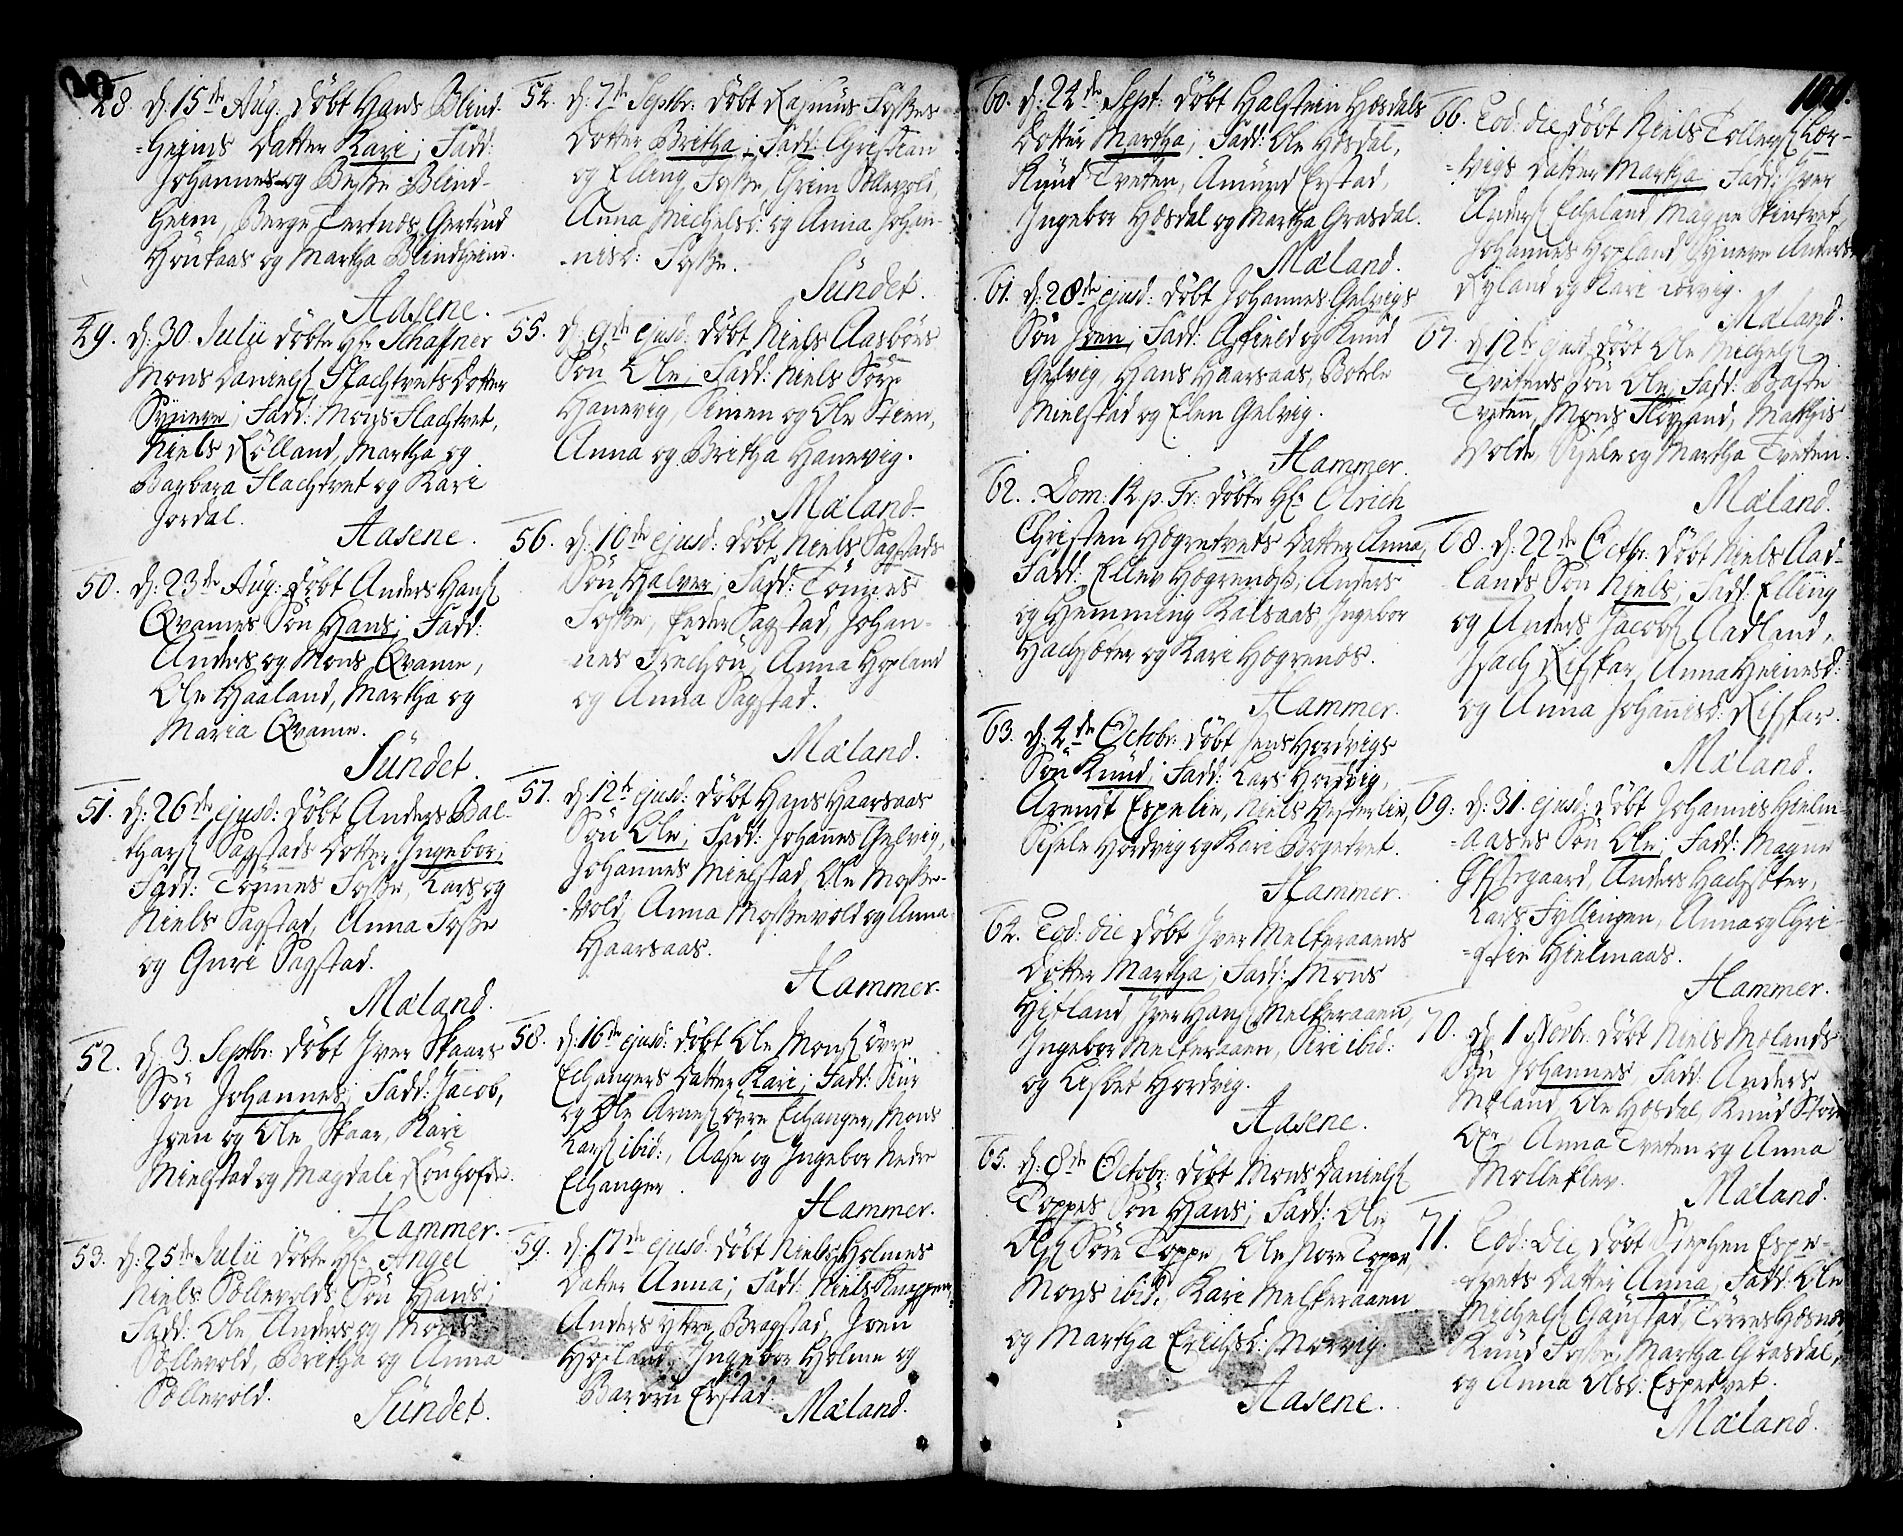 48. d. 15de Aug. döbt Hans Blind-
heims Datter Kari; Fadd:
Johannes og Beße Blind-
heim, Berge Tertnæs, Gertrud
Hönkaas og Martha Blindheim.
Aasene.
49. d: 30 Julii döbte Hr. Schaffner
Mons Daniels Flachtvets Dotter
Synneve; Fadd: Mons Flachtvet,
Niels Rölland, Martha og
Barbara Flachtvet og Kari
Jordal.
Aasene.
50. d: 23de Aug: döbt Anders Hans
Qvames Sön Hans; Fadd:
Anders og Mons Qvame,
Ole Haaland, Martha og
Maria Qvame.
Sündet.
51. d: 26de ejusd: döbt Anders Bal-
thars Sagstads Dotter Ingebor;
Fadd: Tönnes Foße, Lars og
Niels Sagstad, Anna Foße
og Guri Sagstad.
Mæland.
52. d. 3. Septbr: döbt Iver Skaars
Sön Johannes; Fadd: Jacob,
Joen og Ole Skaar, Kari
Mielstad og Magdali Rönhofde.
Hammer.
53. d: 25de Julii döbte Hr. Angel
Niels Söllevolds Sön Hans;
Fadd: Ole, Anders og Mons
Söllevold, Britha og Anna
Söllevold.
Sündet.
54. d: 7de Septbr: döbt Rasmus Foßes
Dotter Britha; Fadd: Christian
og Elling Foße, Grim Söllevold,
Anna Michelsd: og Anna Johan-
nisd: Foße.
Sündet.
55. d. 9de ejusd: döbt Niels Aasböes
Sön Ole; Fadd: Niels Söre
Hanevig, Simen og Ole Steen,
Anna og Britha Hanevig.
Mæland.
56. d: 10de ejusd: döbt Niels Sagstads
Sön Halver; Fadd: Tönnes
Foße, Peder Sagstad, Johan-
nes Frechou, Anna Hopland
og Anna Sagstad.
Mæland.
57. d. 12te ejusd: döbt Hans Haarsaas
Sön Ole; Fadd: Johannes Gelvig,
Johannes Mielstad, Ole Moße-
vold, Anna Moßevold og Anna
Haarsaas.
Hammer.
58. d: 16de ejusd: döbt Ole Mons övre
Elhangers Datter Kari; Fadd: Siur
og Ole Arnes övre Elhanger, Mons
Lars ibid:, Aase og Ingebor Nedre
Elhanger.
Hammer.
59. d. 17de ejusd: döbt Niels Holmes
Datter Anna; Fadd: Niels Knappen,
Anders ytre Bragstad, Joen
Hæland, Ingebor Holme og
Barbru Erstad.
Mæland.
60. d: 24de Sept: döbt Halstein Hæsdals
Dotter Martha; Fadd: Ole Hæsdal,
Knud Tveten, Amund Erstad,
Ingebor Hæsdal og Martha Grasdal.
Mæland.
61. d: 28de ejusd: döbt Johannes Gelvigs
Sön Joen; Fadd: Asfield og Knud
Gelvig, Hans Haarsaas, Botele
Mielstad og Elen Gelvig.
Hammer.
62. Dom: 14 p. Tr: döbte Hr. Olrich
Christen Hogretvets Datter Anna,
Fadd: Ellev Hogrenæs, Anders
og Hemming Kalsaas, Ingebor
Hachsöter og Kari Hogrenæs.
Hammer.
63. d. 4de Octobr: döbt Jens Hordvigs
Sön Knud; Fadd: Lars Hordvig,
Arendt Espelie, Niels Hesterlie,
Sisele Hordvig og Kari Borgetvet.
Hammer.
64. Eod: die döbt Iver Melkeraaens
Dotter Martha; Fadd: Mons
Hitland, Iver Hans Melkeraaen,
Ingebor Melkeraaen, Siri ibid:
og Lisbet Hordvig.
Aasene.
65. d. 8de Octobr: döbt Mons Daniels
Toppes Sön Hans; Fadd: Ole
Ols Söre Toppe, Ole Nore Toppe,
Mons ibid:, Kari Melkeraaen
og Martha Erichsd: Morvig.
Aasene.
100.
66. Eod: die döbt Niels Tollegs Lor-
vigs Datter Martha; Fadd: Iver
Anders Echeland, Magne Skintvet,
Johannes Hopland, Synneve Anders
Ryland og Kari Lorvig.
Mæland.
67. d. 12te ejusd: döbt Ole Michels
Tvetens Sön Ole, Fadd: Baste
Tveten, Mons Floyand, Mathis
Volde, Sisele og Martha Tveten.
Mæland.
68. d. 22de Octbr: döbt Niels Aad-
lands Sön Niels; Fadd: Elling
og Anders Jacobs Aadland,
Isach Ritskar, Anna Heinesd:
og Anna Johannisd: Ritskar.
Mæland.
69. d: 31. ejusd: döbt Johannis Hielm-
aases Sön Ole; Fadd: Magne
Öffstegaard, Anders Hachsöter,
Lars Fyllingen, Anna og Chri-
stie Hielmaas.
Hammer.
70. d. 1 Novbr. döbt Niels Mælands
Sön Johannes, Fadd: Anders
Mæland, Ole Hæsdal, Knud Store
Anna Tveten og Anna
Molleklev.
Mæland.
71. Eod: die döbt Stephen Espe-
tvets Datter Anna; Fadd: Ole
Michels Gaustad, Törres Hæsnes,
Knud Foße, Martha Grasdal,
og Anna Olsd: Espetvet.
Mæland.